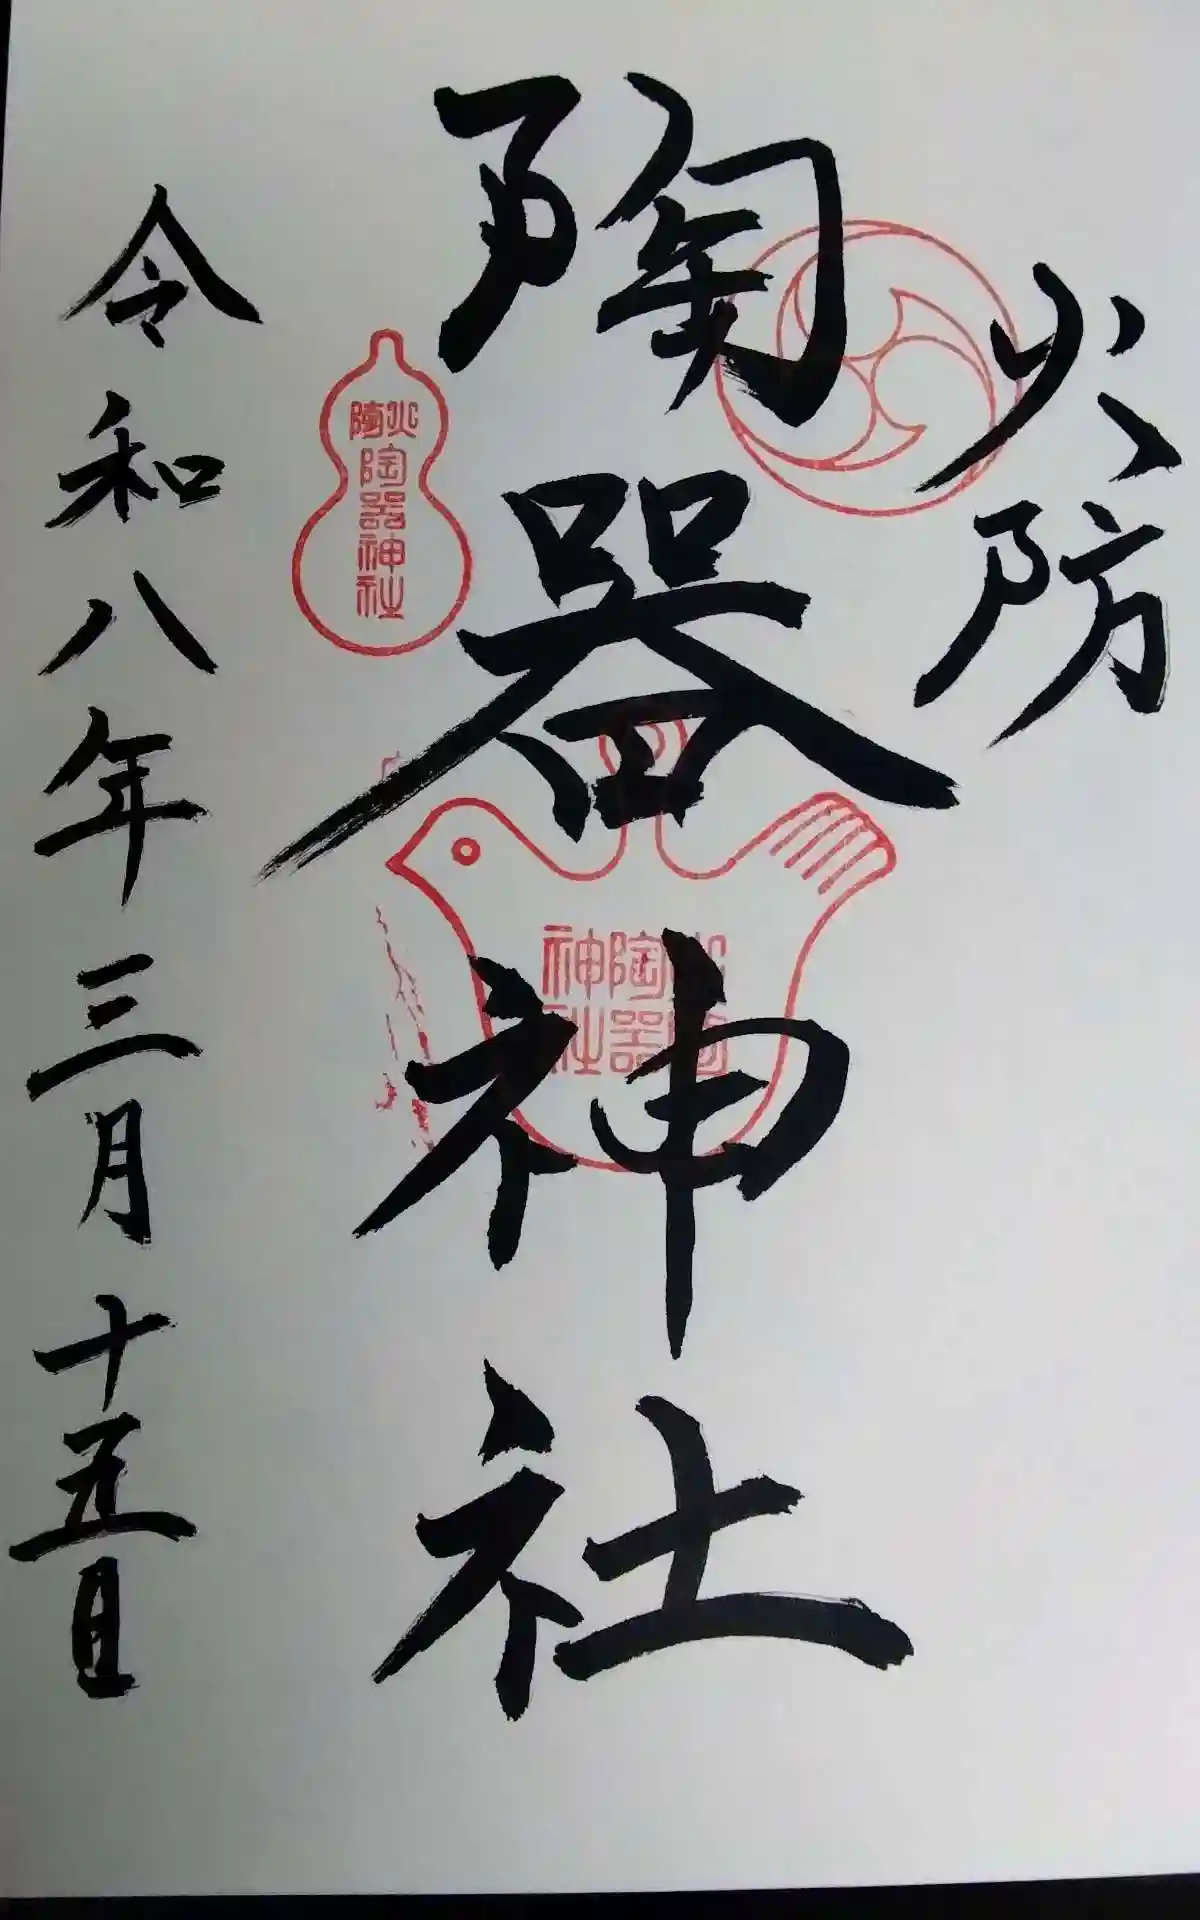 火防
陶器神社
火防
陶器神社
火防
陶器
神社
令和八年三月十五日